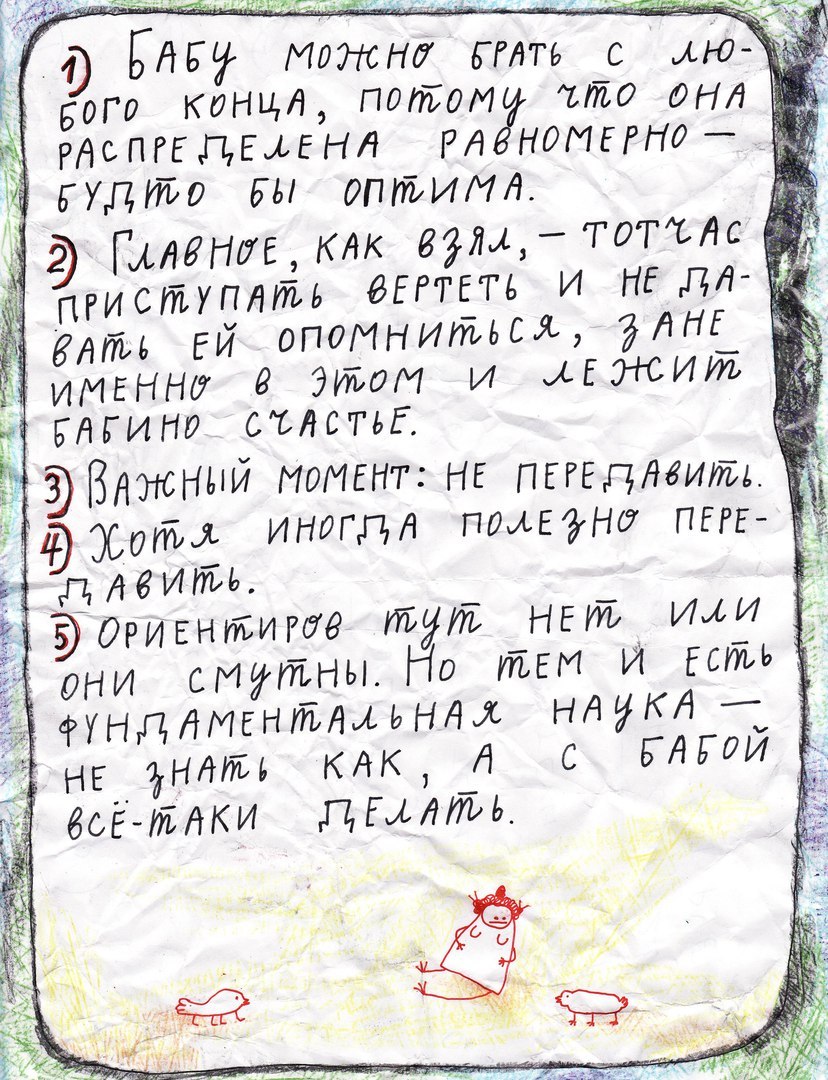 1) Бабу можно брать с лю-
бого конца, потому что она
распределена равномерно —
будто бы оптима.
2) Главное, как взял, — тотчас
приступать вертеть и не да-
вать ей опомниться, зане
именно в этом и лежит
бабино счастье.
3) Важный момент: не передавить.
4) Хотя иногда полезно пере-
давить.
5) Ориентиров тут нет или
они смутны. Но тем и есть
фундаментальная наука —
не знать как, а с бабой
всё-таки делать.